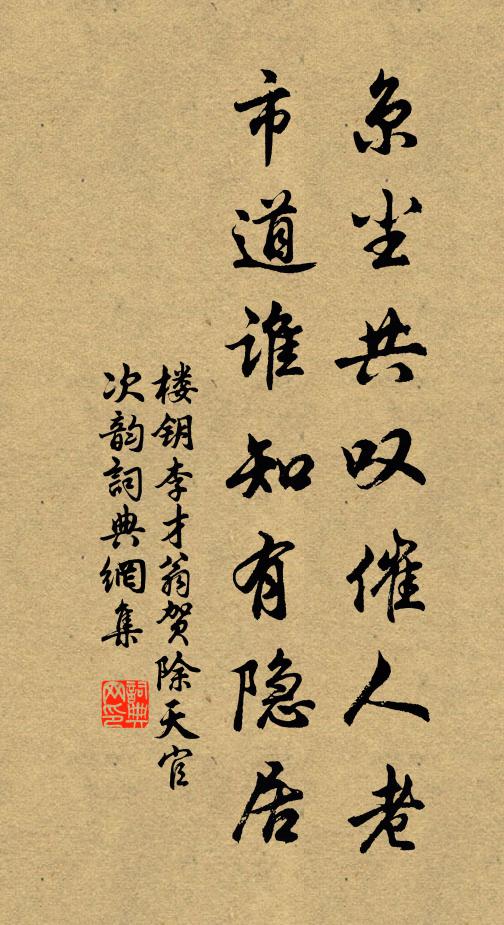 京尘共叹催人老
市道谁知有隐居
楼钥李才翁贺除天官
次韵詞典網集
詞典網印